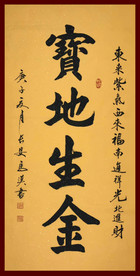 東來紫氣西來福南進祥光北進財
寶地生金
庚子之夏月